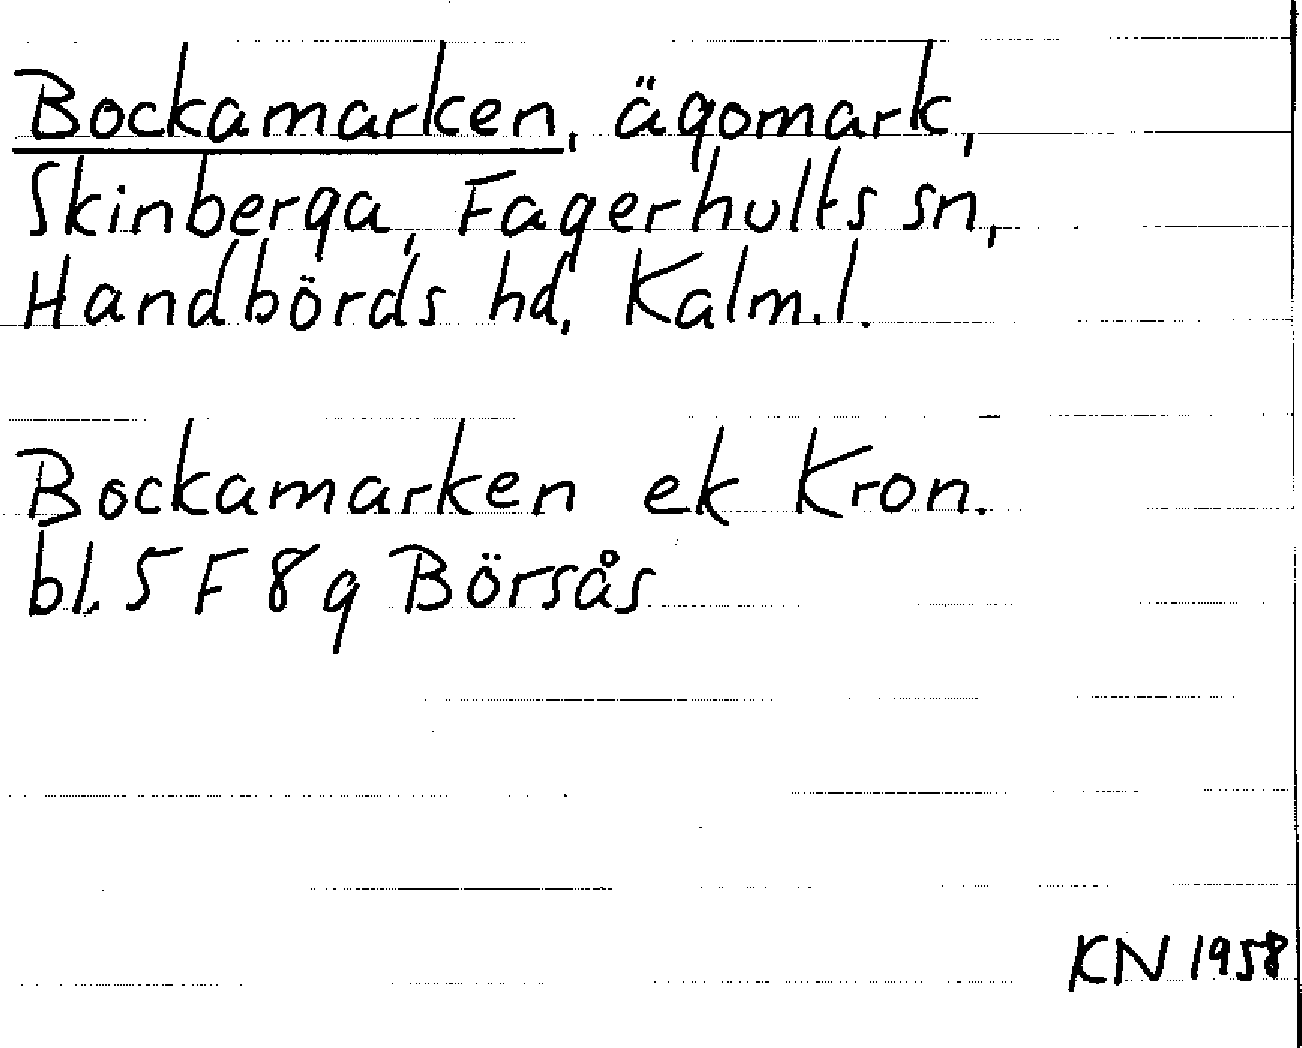 Bockamarken, ägomark,
Skinberga, Fagerhults sn,
Handbörds hd, Kalm.l.
Bockamarken ek Kron.
bl. 5 F 8 g Börsås
KN 1958